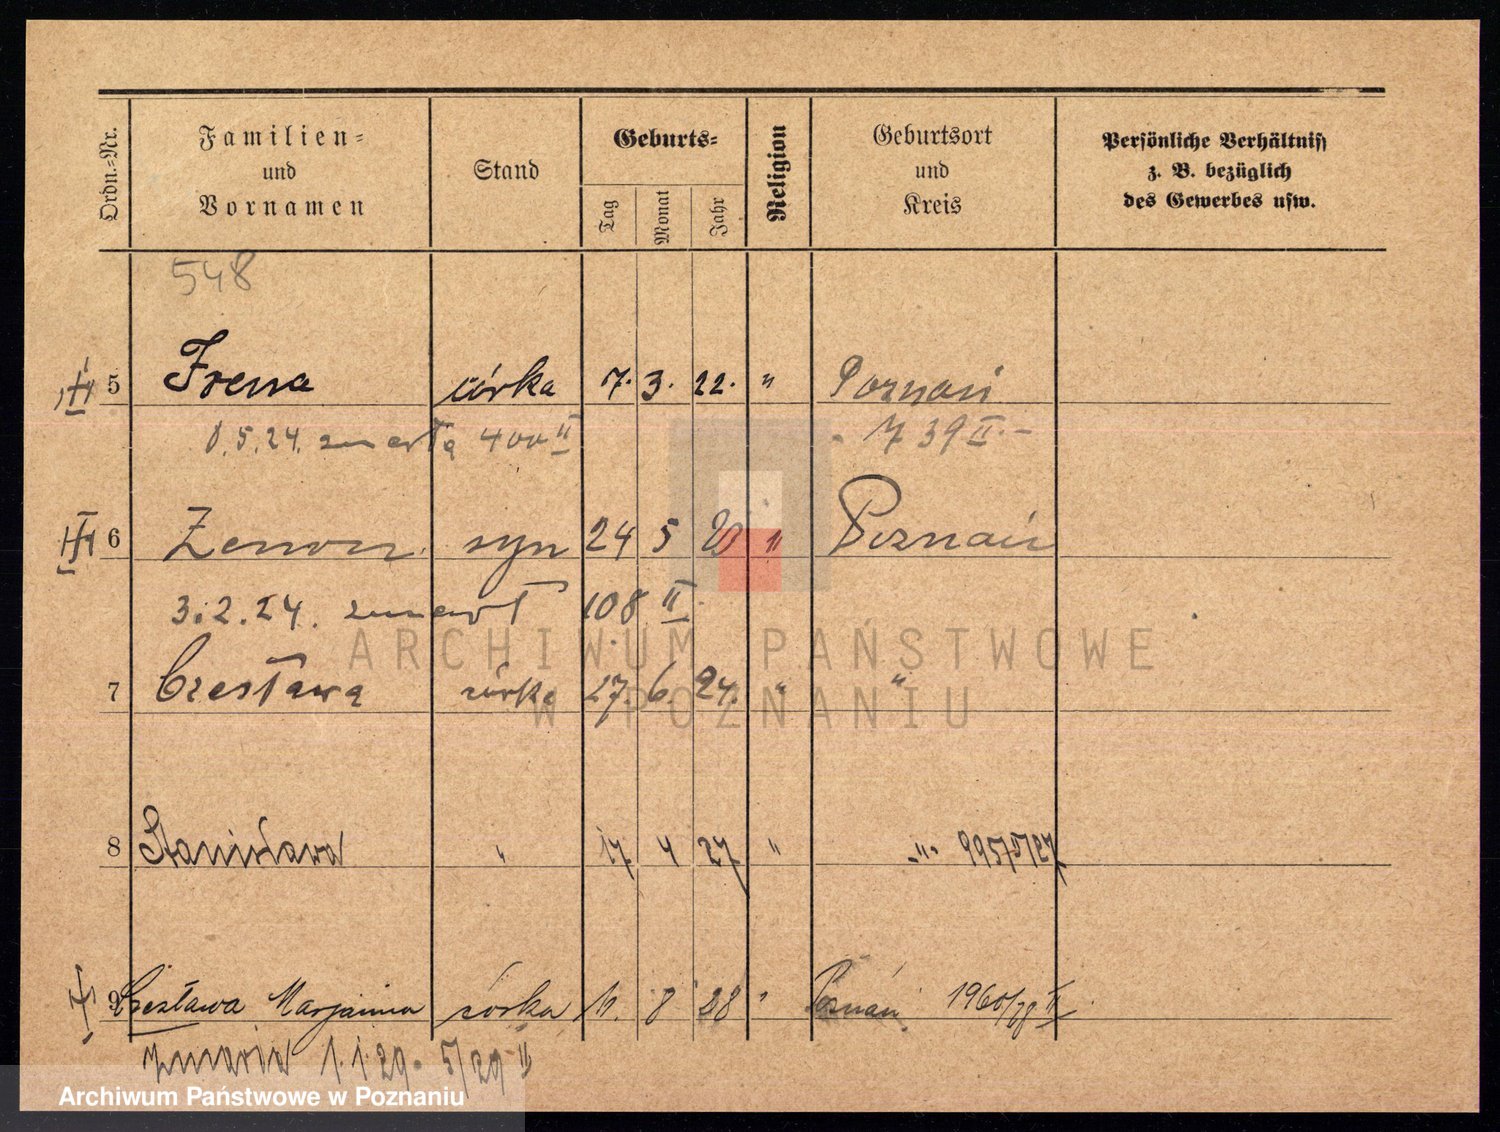 Ordn.-Nr.
Familien- und Vornamen
Stand
Geburts-
Tag
Monat
Jahr
Religion
Geburtsort und Kreis
Persönliche Verhältniss z. B. bezüglich des Gewerbes usw.
548
5 Irena córka 7. 3. 22. " Poznań
5.24. zmarła 400 II 739 II.-
6 Zenon syn 24 5 20 " Poznań
3.2.24. zmarł 108 II
7 Czesława córka 27. 6. 24. " "
8 Stanisława " 17 4 27 " -"-
9 Czesława Marjanna córka 11. 8 28 " Poznań 1960/28 II
zmarła 1.1.29. 5/29 II
ARCHIWUM PAŃSTWOWE
W POZNANIU
Archiwum Państwowe w Poznaniu